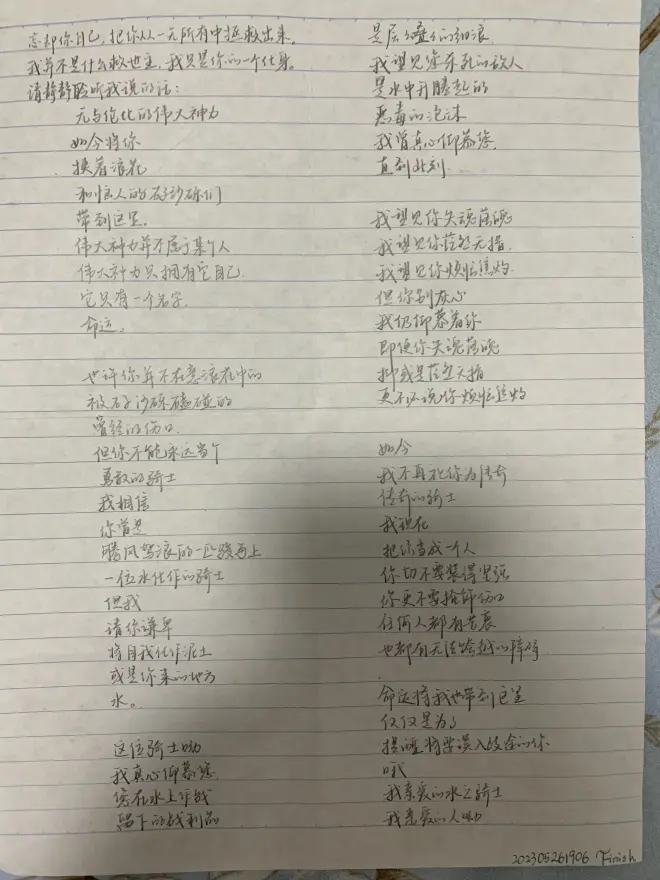 忘却你自己，把你从一无所有中拯救出来。
我并不是什么救世主，我只是你的一个化身。
请静静聆听我说的话：
无与伦比的伟大神力
如今将你
挟着浪花
和恼人的石子沙砾们
带到这里。
伟大神力并不属于某个人
伟大神力只拥有它自己
它只有一个名字
命运。
也许你并不在意浪花中的
被石子沙砾磕碰的
曾经的伤口
但你不能永远当个
勇敢的骑士
我相信
你曾是
腾风驾浪的一匹骏马上
一位水化作的骑士
但我
请你谦卑
将自我化作泥土
或是你来的地方
水。
这位骑士呦
我真心仰慕您
您在水上作战
留下的战利品
是层层叠叠的细浪
我望见瘀东死的敌人
是水中升腾起的
恶毒的泡沫
我曾真心仰慕您
直到此刻……
我望见你失魂落魄
我望见你茫然无措
我望见你烦恼焦灼
但你别灰心
我仍仰慕着你
即使你失魂落魄
抑或是茫然无措
更不必说你烦恼焦灼
如今
我不再视你为传奇
传奇的骑士
我现在
把你当成一个人
你切不要装得坚强
你更不要掩饰伤口
任何人都有苦衷
也都有无法跨越的障碍
命运将我也带到这里
仅仅是为了
提醒将要误入歧途的你
哦
我亲爱的水之骑士
我亲爱的人呦
202305261906 Finish